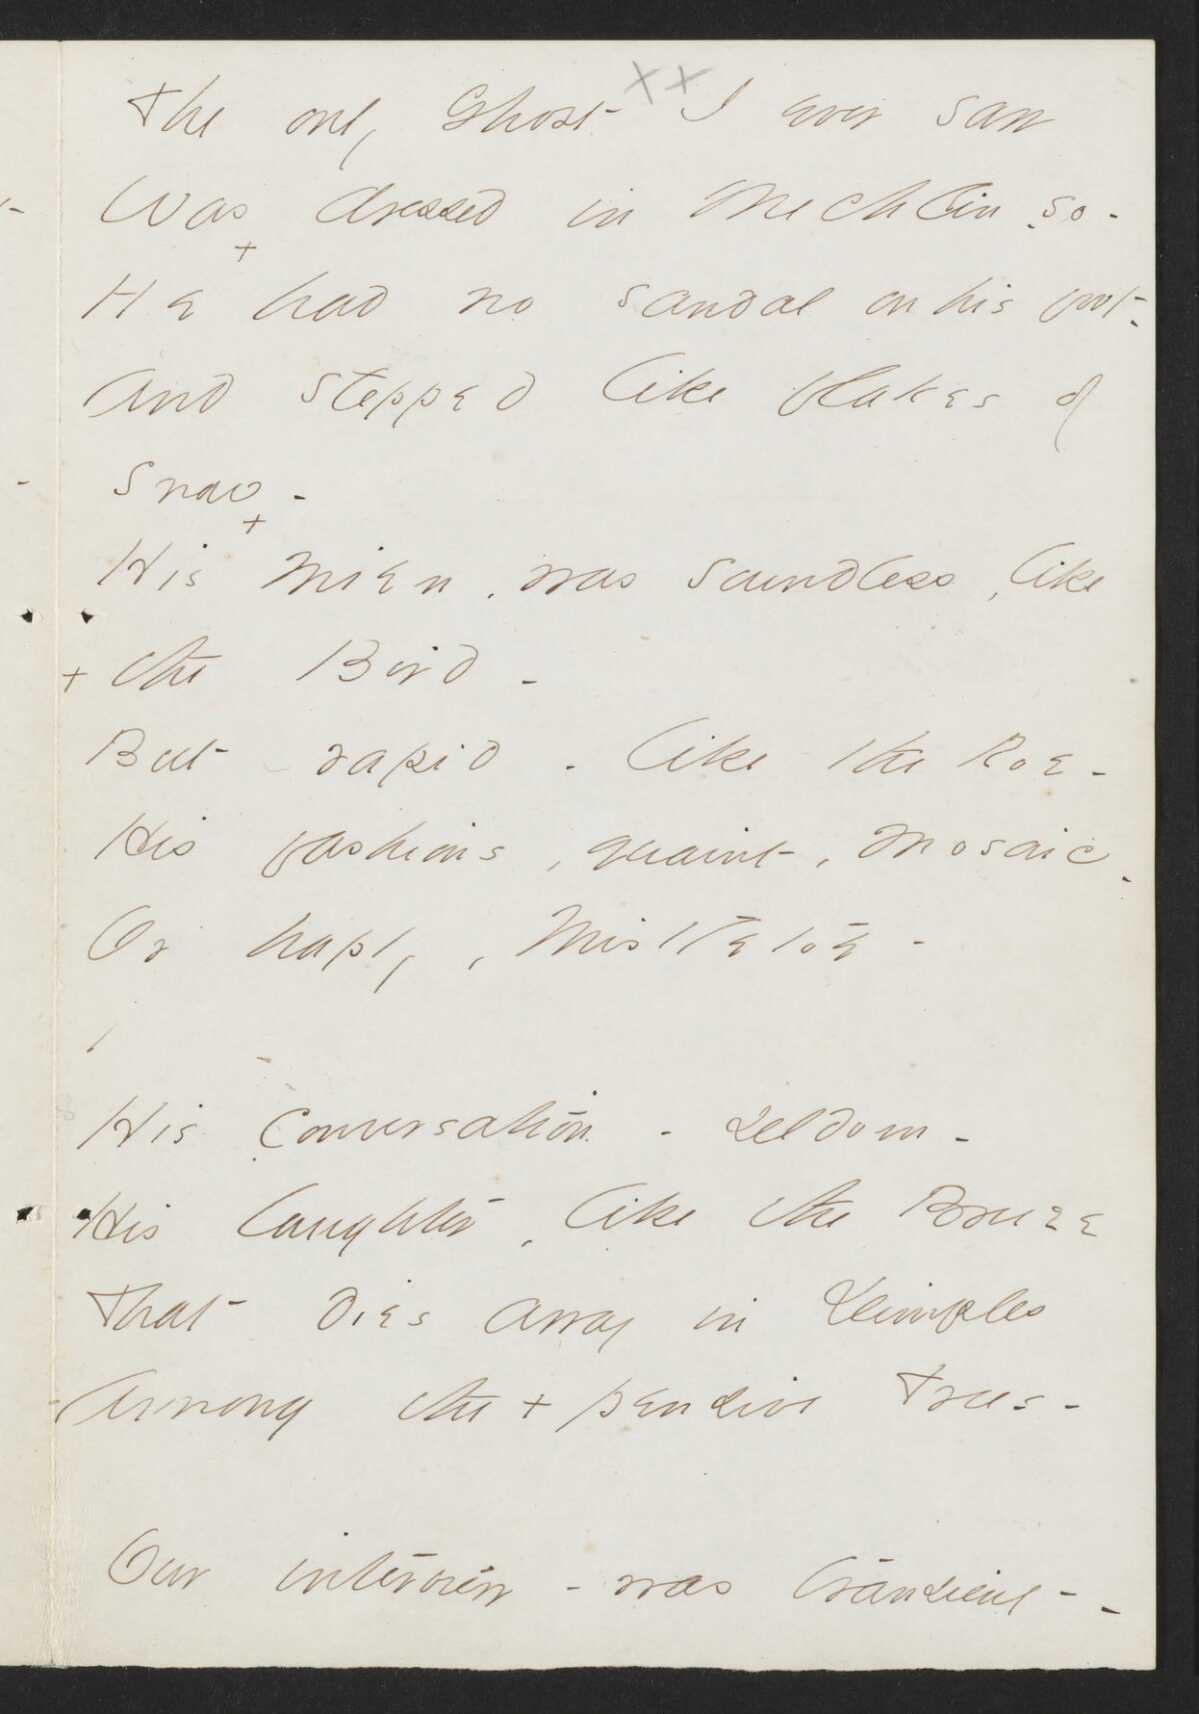 XX
The only Ghost I ever saw
Was dressed in Mechlin, so -
+
He had no sandal on his foot -
And stepped like flakes of
snow -
+
His Mien, was soundless, like
+ the Bird -
But rapid - like the Roe -
His fashions, quaint, Mosaic -
Or haply, Mistletoe -
His conversation - seldom -
His laughter, like the Breeze
That dies away in Dimples
Among the + pensive Trees -
Our interview - was transient -